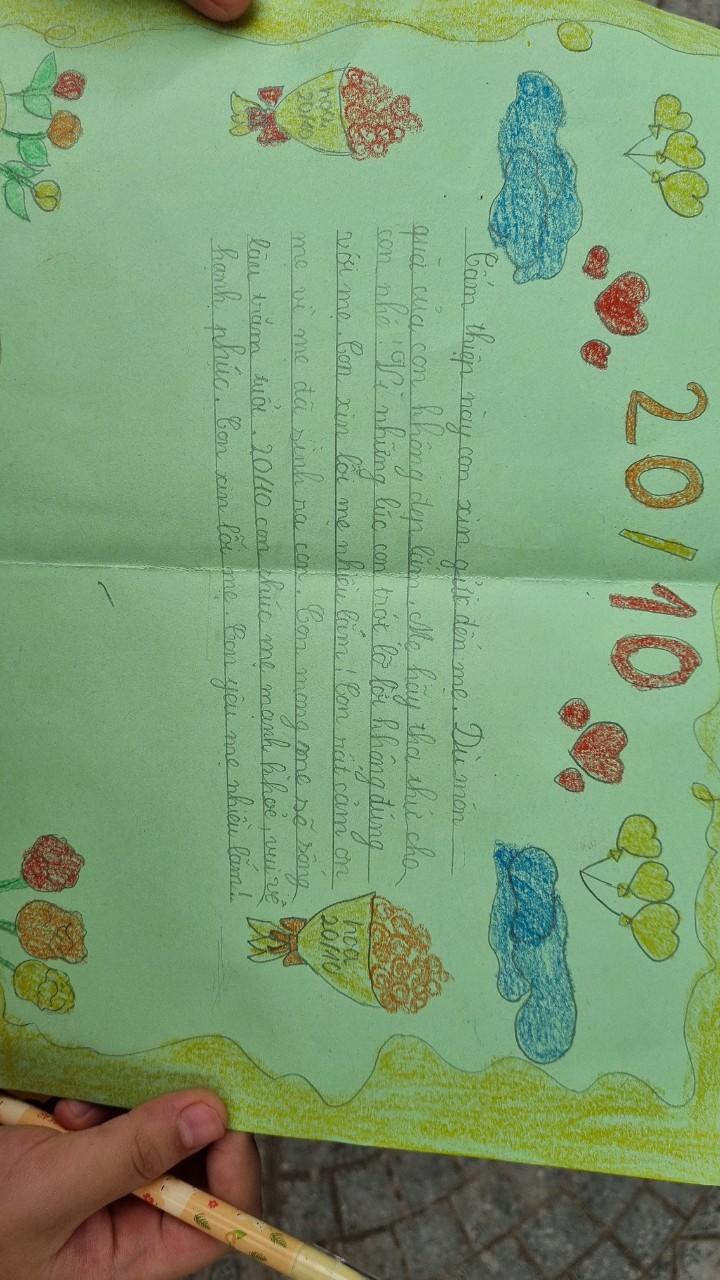 20/10
Tấm thiệp này con xin gửi đến mẹ. Dù món
quà của con không đẹp lắm. Mẹ hãy tha thứ cho
con nhé! Vì những lúc con trót lỡ lời không đúng
với mẹ. Con xin lỗi mẹ nhiều lắm! Con rất cảm ơn
mẹ vì mẹ đã sinh ra con. Con mong mẹ sẽ sống
lâu trăm tuổi. 20/10 con chúc mẹ mạnh khoẻ, vui vẻ
hạnh phúc. Con xin lỗi mẹ. Con yêu mẹ nhiều lắm!
hoa
20/10
hoa
20/10